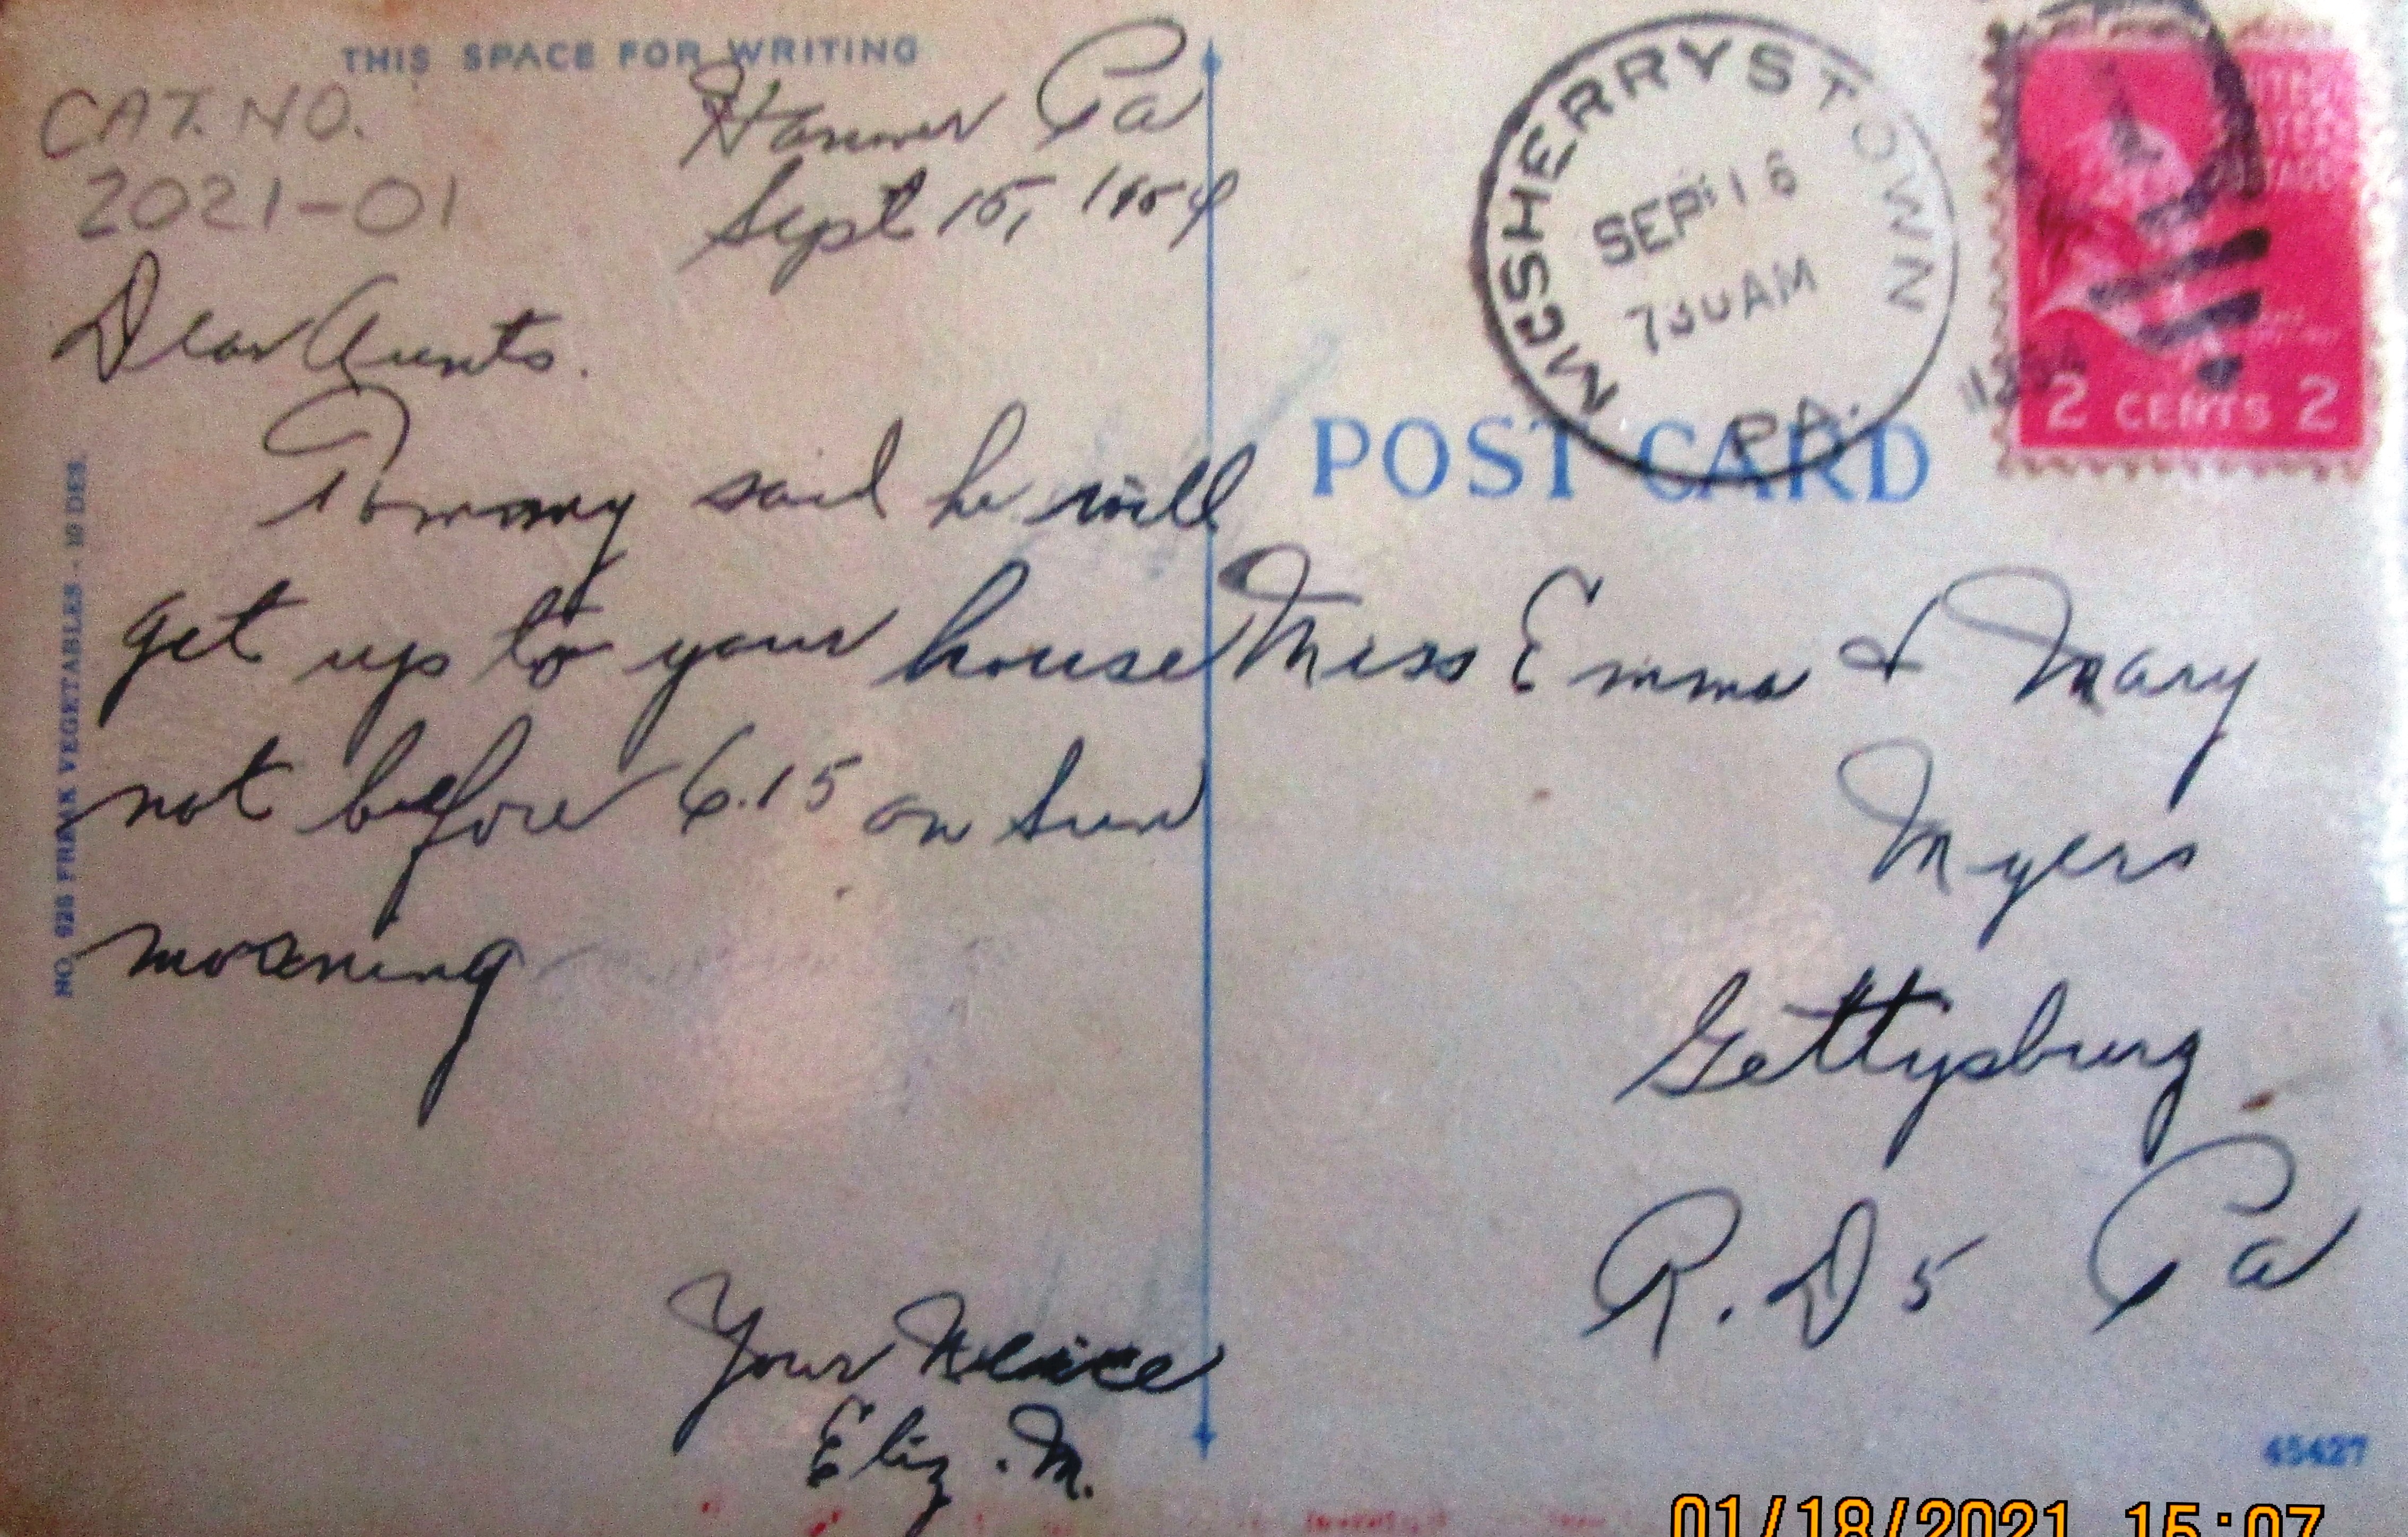 THIS SPACE FOR WRITING
CAT. NO.
2021-01
Hanover Pa
Sept 15, 1954
Dear Aunts.
Tommy said he will
get up to your house
not before 6.15 on Sun
morning
Your Neice
Eliz. M.
NO. 925 FREAK VEGETABLES - 10 DES.
MCSHERRYSTOWN
SEP 16
730 AM
PA.
UNITED
STATES
POSTAGE
2 CENTS 2
POST CARD
Miss Emma & Mary
Myers
Gettysburg
R.D 5 Pa
45427
01/18/2021 15:07